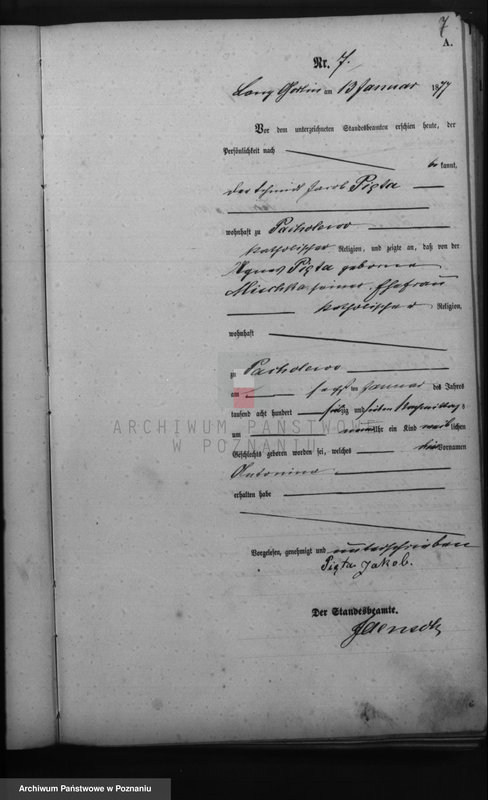 7
A.
Nr. 7.
Lang Goslin am 13 Januar 1877
Vor dem unterzeichneten Standesbeamten erschien heute, der
Persönlichkeit nach
be kannt,
der Schmidt Jacob Pięta
wohnhaft zu Pacholewo
katholischer Religion, und zeigte an, daß von der
Agnes Pięta geborene
Mischka seiner Ehefrau
katholischer Religion,
wohnhaft
zu Pacholewo
am sechsten Januar des Jahres
tausend acht hundert siebzig und sieben Nachmittags
um neun Uhr ein Kind weiblichen
Geschlechts geboren worden sei, welches die Vornamen
Antonina
erhalten habe
Vorgelesen, genehmigt und unterschrieben
Pięta Jakob.
Der Standesbeamte.
ARCHIWUM PAŃSTWOWE
W POZNANIU
Archiwum Państwowe w Poznaniu